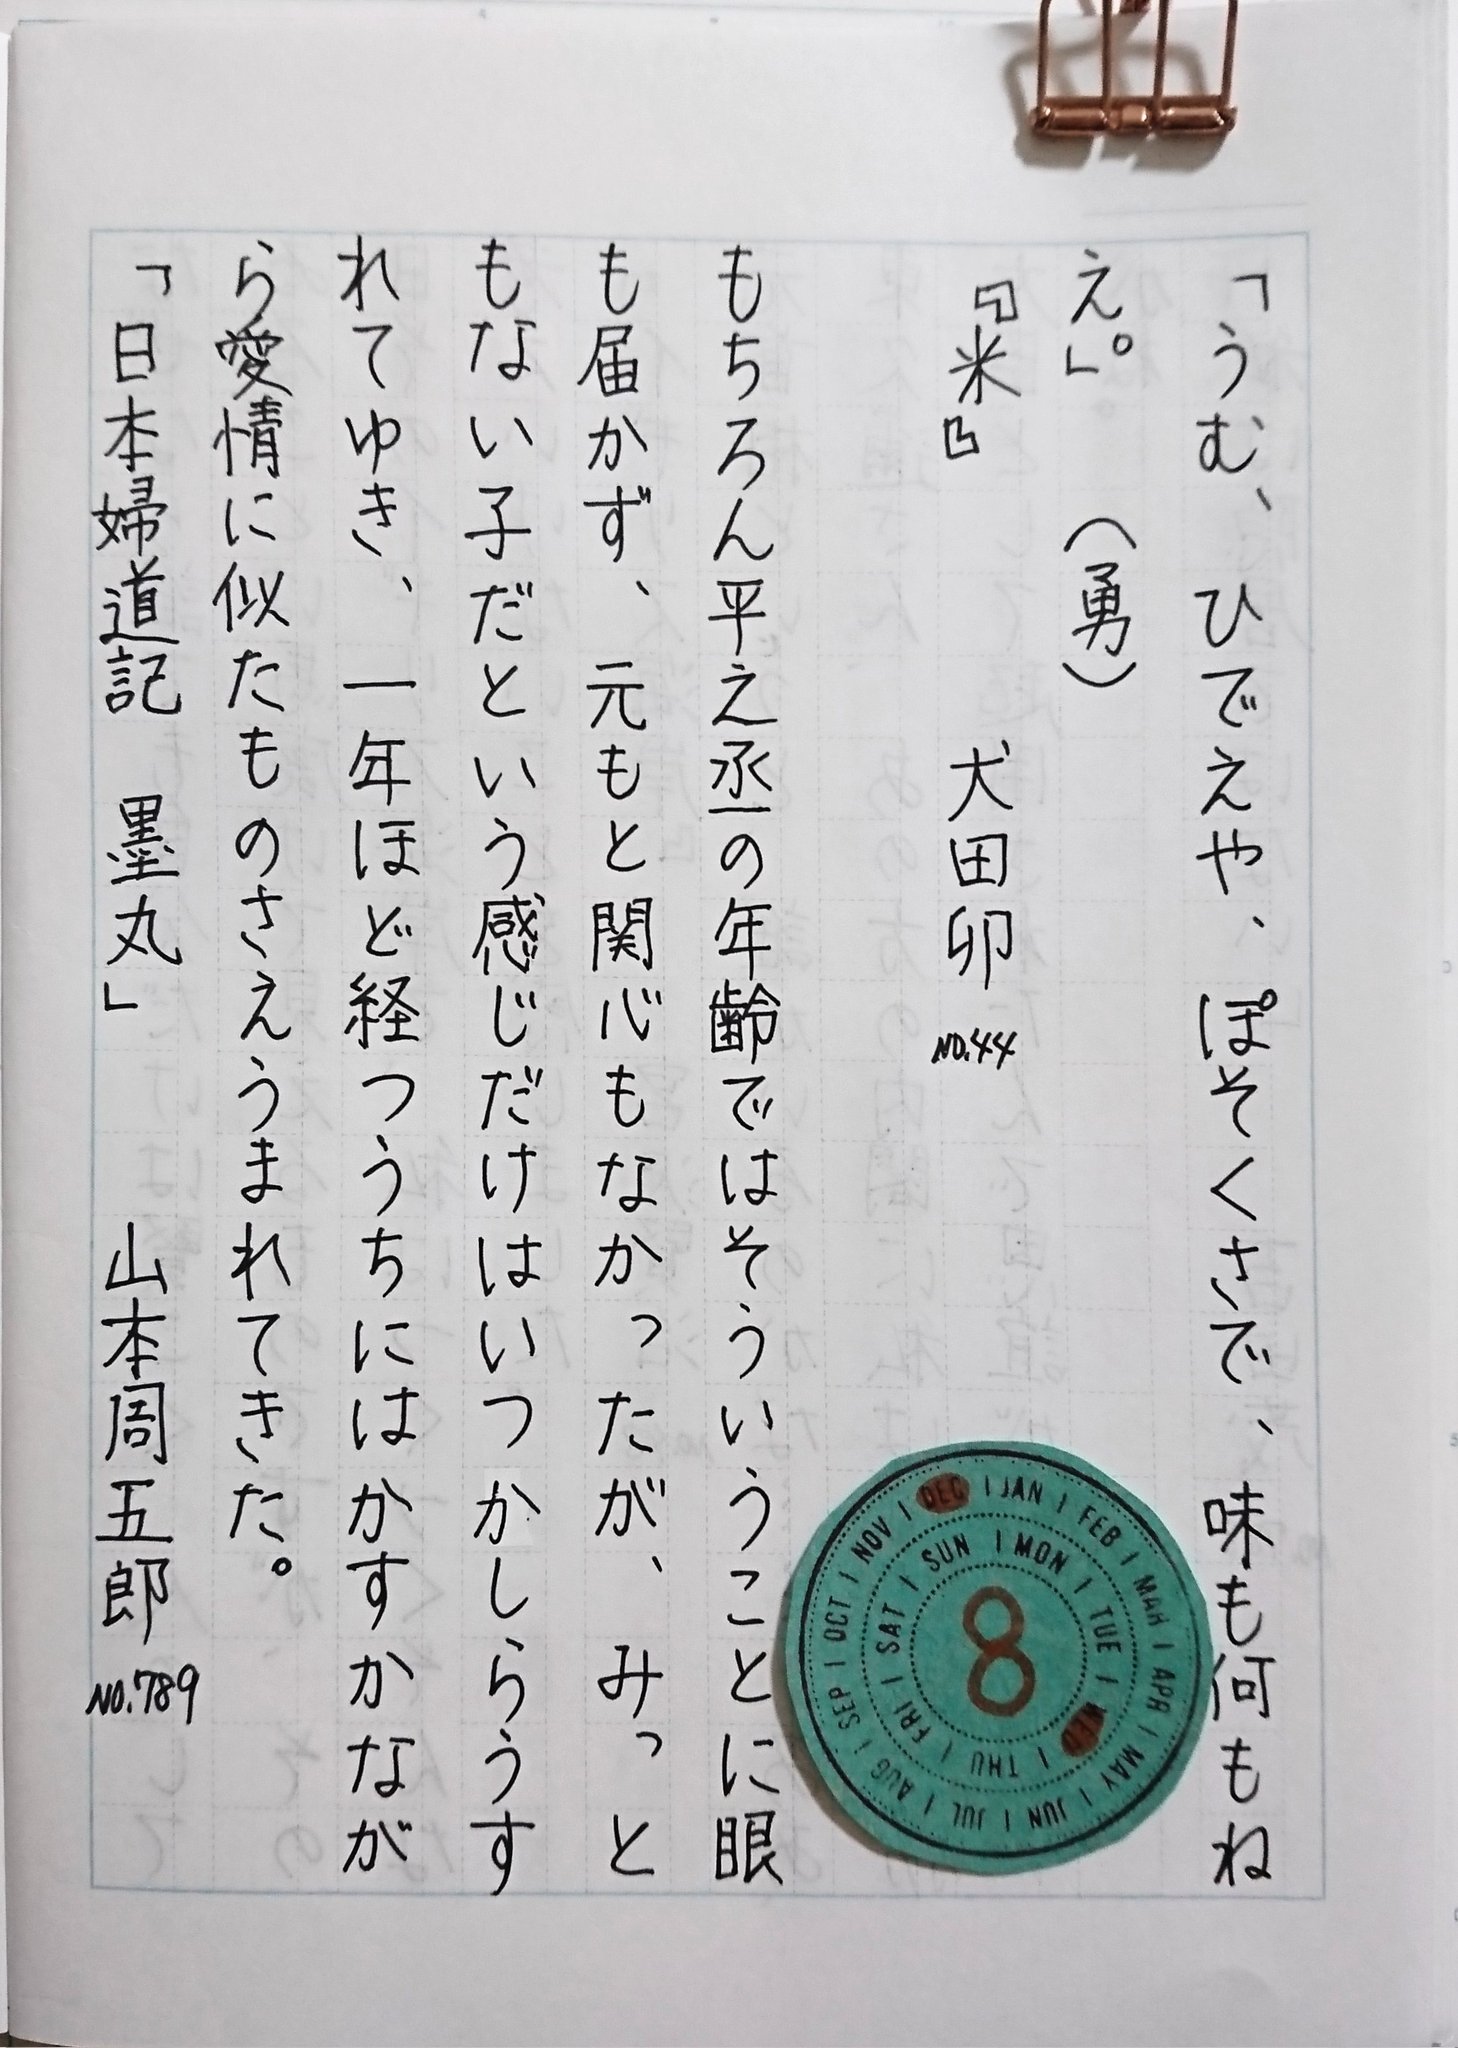 「うむ、ひでえや、ぽそくさで、味も何もね
え。」　　（勇）
『米』　　　　犬田卯　NO.44
もちろん平之丞の年齢ではそういうことに眼
も届かず、元もと関心もなかったが、みっと
もない子だという感じだけはいつかしらうす
れてゆき、一年ほど経つうちにはかすかなが
ら愛情に似たものさえうまれてきた。
「日本婦道記　墨丸」　　山本周五郎　NO.789
JAN FEB MAR APR MAY JUN JUL AUG SEP OCT NOV DEC
SUN MON TUE WED THU FRI SAT
8